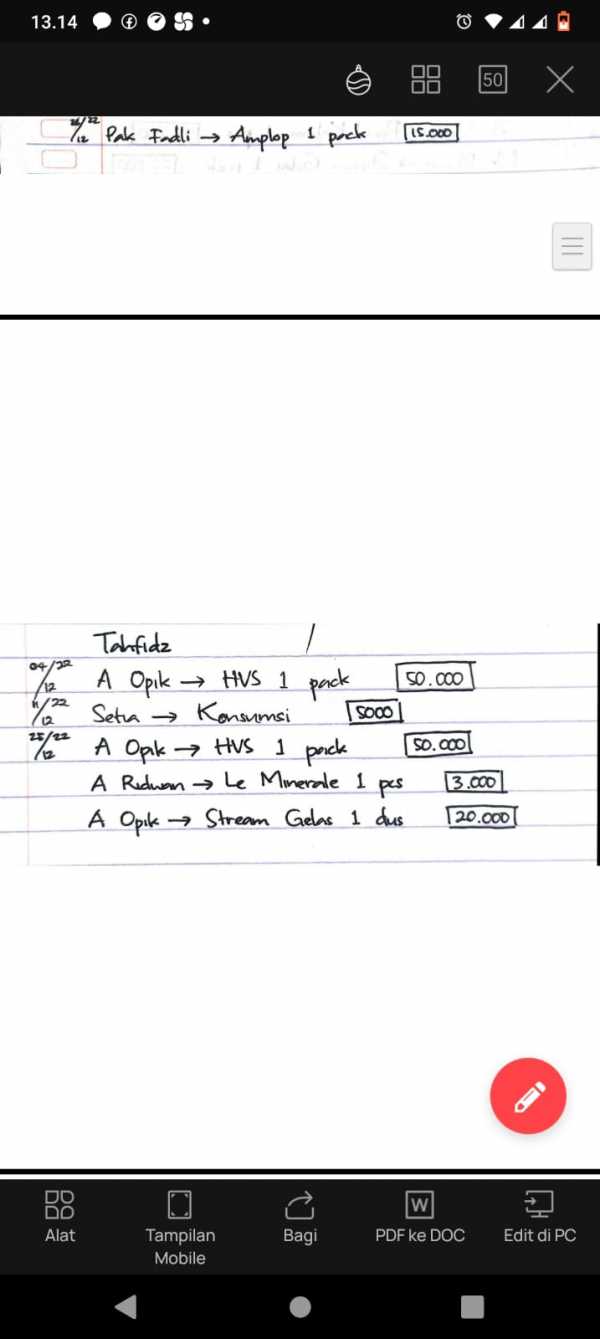 13.14
50
26/22/12 Pak Fadli → Amplop 1 pack 15.000
Tahfidz /
04/22/12 A Opik → HVS 1 pack 50.000
11/22/12 Setia → Konsumsi 5000
25/22/12 A Opik → HVS 1 pack 50.000
A Ridwan → Le Minerale 1 pcs 3.000
A Opik → Stream Gelas 1 dus 20.000
Alat
Tampilan Mobile
Bagi
W
PDF ke DOC
Edit di PC